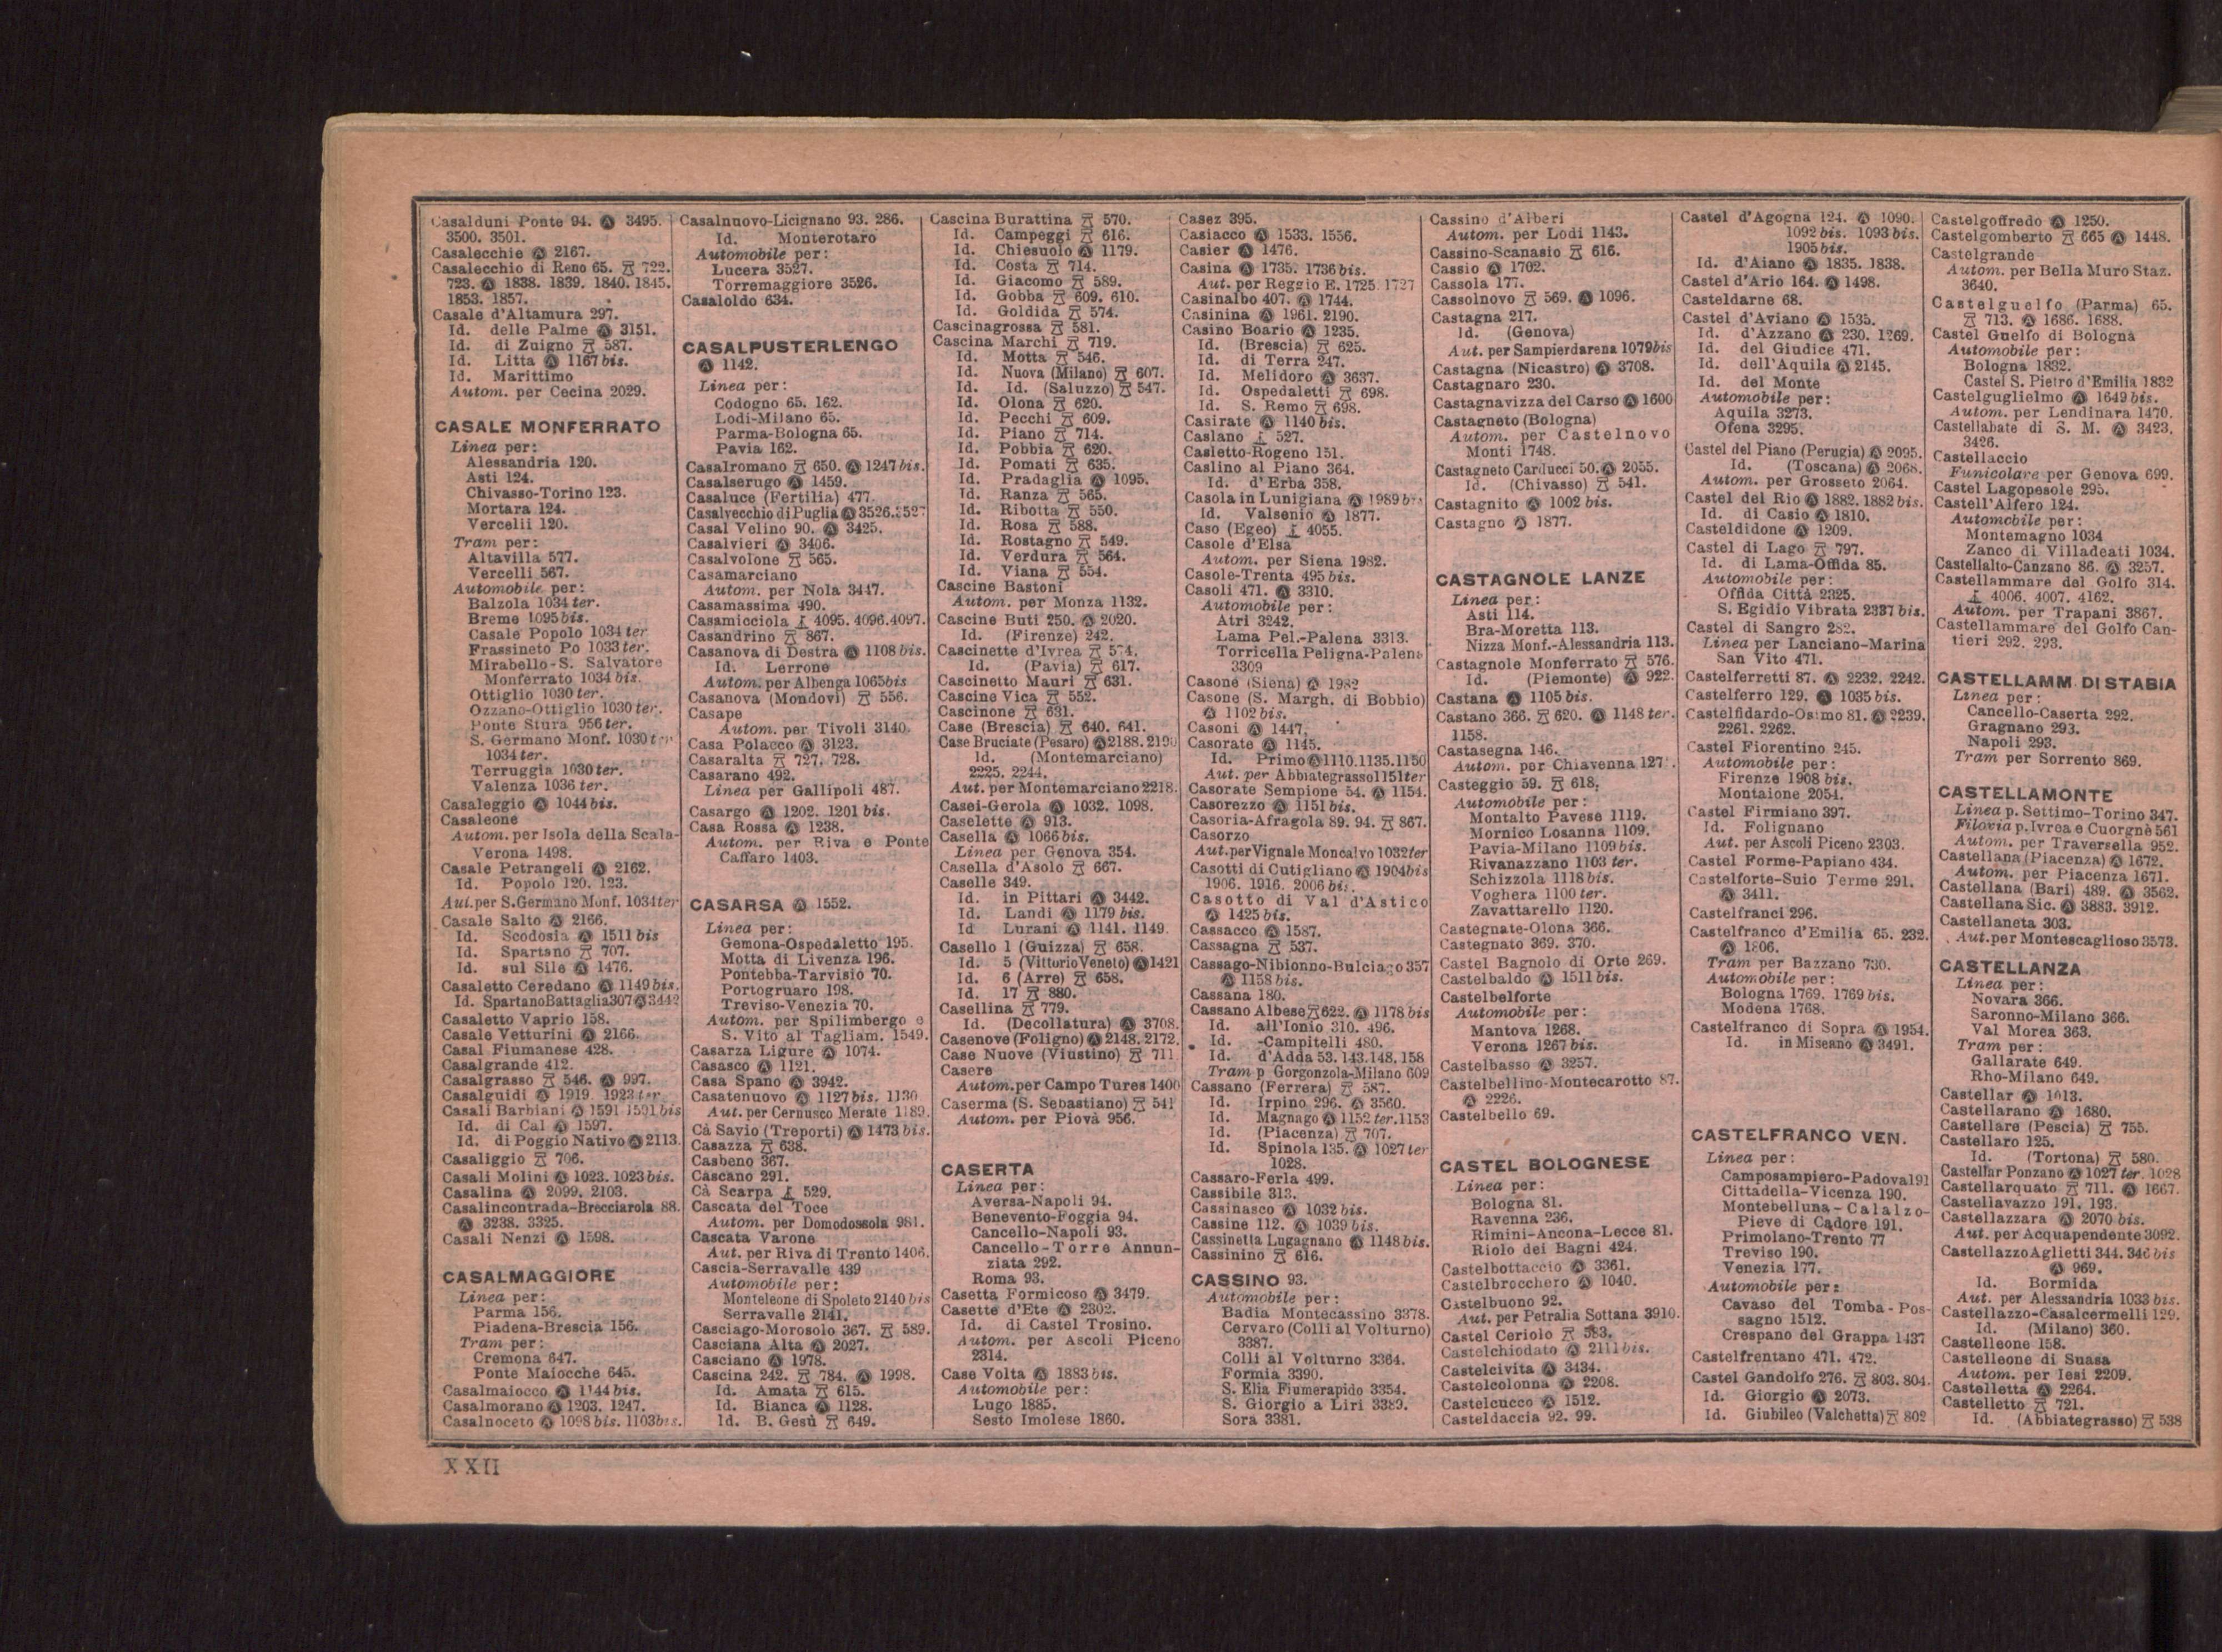 Casalduni Ponte 94. Ⓐ 3495.
3500. 3501.
Casalecchie Ⓐ 2167.
Casalecchio di Reno 65. 722.
723. Ⓐ 1838. 1839. 1840. 1845.
1853. 1857.
Casale d'Altamura 297.
Id. delle Palme Ⓐ 3151.
Id. di Zuigno 587.
Id. Litta Ⓐ 1167 bis.
Id. Marittimo
Autom. per Cecina 2029.
CASALE MONFERRATO
Linea per:
Alessandria 120.
Asti 124.
Chivasso-Torino 123.
Mortara 124.
Vercelli 120.
Tram per:
Altavilla 577.
Vercelli 567.
Automobile per:
Balzola 1034 ter.
Breme 1095 bis.
Casale Popolo 1034 ter
Frassineto Po 1033 ter.
Mirabello-S. Salvatore
Monferrato 1034 bis.
Ottiglio 1030 ter.
Ozzano-Ottiglio 1030 ter.
Ponte Stura 956 ter.
S. Germano Monf. 1030 ter
1034 ter.
Terruggia 1030 ter.
Valenza 1036 ter.
Casaleggio Ⓐ 1044 bis.
Casaleone
Autom. per Isola della Scala-
Verona 1498.
Casale Petrangeli Ⓐ 2162.
Id. Popolo 120. 123.
Aut. per S. Germano Monf. 1034 ter
Casale Salto Ⓐ 2166.
Id. Scodosia Ⓐ 1511 bis
Id. Spartano 707.
Id. sul Sile Ⓐ 1476.
Casaletto Ceredano Ⓐ 1149 bis.
Id. Spartano Battaglia 307 Ⓐ 3442
Casaletto Vaprio 158.
Casale Vetturini Ⓐ 2166.
Casal Fiumanese 428.
Casalgrande 412.
Casalgrasso 546. Ⓐ 997.
Casalguidi Ⓐ 1919. 1923 ter
Casali Barbiani Ⓐ 1591 1591 bis
Id. di Cal Ⓐ 1597.
Id. di Poggio Nativo Ⓐ 2113.
Casaliggio 706.
Casali Molini Ⓐ 1023. 1023 bis.
Casalina Ⓐ 2099. 2103.
Casalincontrada-Brecciarola 88.
Ⓐ 3238. 3325.
Casali Nenzi Ⓐ 1598.
CASALMAGGIORE
Linea per:
Parma 156.
Piadena-Brescia 156.
Tram per:
Cremona 647.
Ponte Maiocche 645.
Casalmaiocco Ⓐ 1144 bis.
Casalmorano Ⓐ 1203. 1247.
Casalnoceto Ⓐ 1098 bis. 1103 bis.
Casalnuovo-Licignano 93. 286.
Id. Monterotaro
Automobile per:
Lucera 3527.
Torremaggiore 3526.
Casaloldo 634.
CASALPUSTERLENGO
Ⓐ 1142.
Linea per:
Codogno 65. 162.
Lodi-Milano 65.
Parma-Bologna 65.
Pavia 162.
Casalromano 650. Ⓐ 1247 bis.
Casalserugo Ⓐ 1459.
Casaluce (Fertilia) 477.
Casalvecchio di Puglia Ⓐ 3526. 3527
Casal Velino 90. Ⓐ 3425.
Casalvieri Ⓐ 3406.
Casalvolone 565.
Casamarciano
Autom. per Nola 3447.
Casamassima 490.
Casamicciola 4095. 4096. 4097.
Casandrino 867.
Casanova di Destra Ⓐ 1108 bis.
Id. Lerrone
Autom. per Albenga 1065 bis
Casanova (Mondovì) 556.
Casape
Autom. per Tivoli 3140.
Casa Polacco Ⓐ 3123.
Casaralta 727. 728.
Casarano 492.
Linea per Gallipoli 487.
Casargo Ⓐ 1202. 1201 bis.
Casa Rossa Ⓐ 1238.
Autom. per Riva e Ponte
Caffaro 1403.
CASARSA Ⓐ 1552.
Linea per:
Gemona-Ospedaletto 195.
Motta di Livenza 196.
Pontebba-Tarvisio 70.
Portogruaro 198.
Treviso-Venezia 70.
Autom. per Spilimbergo e
S. Vito al Tagliam. 1549.
Casarza Ligure Ⓐ 1074.
Casasco Ⓐ 1121.
Casa Spano Ⓐ 3942.
Casatenuovo Ⓐ 1127 bis. 1130
Aut. per Cernusco Merate 1189.
Cà Savio (Treporti) Ⓐ 1473 bis.
Casazza 638.
Casbeno 367.
Cascano 291.
Cà Scarpa 529.
Cascata del Toce
Autom. per Domodossola 981.
Cascata Varone
Aut. per Riva di Trento 1406.
Cascia-Serravalle 439
Automobile per:
Monteleone di Spoleto 2140 bis
Serravalle 2141.
Casciago-Morosolo 367. 589.
Casciana Alta Ⓐ 2027.
Casciano Ⓐ 1978.
Cascina 242. 784. Ⓐ 1998.
Id. Amata 615.
Id. Bianca Ⓐ 1128.
Id. B. Gesù 649.
Cascina Burattina 570.
Id. Campeggi 616.
Id. Chiesuolo Ⓐ 1179.
Id. Costa 714.
Id. Giacomo 589.
Id. Gobba 609. 610.
Id. Goldida 574.
Cascinagrossa 581.
Cascina Marchi 719.
Id. Motta 546.
Id. Nuova (Milano) 607.
Id. Id. (Saluzzo) 547.
Id. Olona 620.
Id. Pecchi 609.
Id. Piano 714.
Id. Pobbia 620.
Id. Pomati 635.
Id. Pradaglia Ⓐ 1095.
Id. Ranza 565.
Id. Ribotta 550.
Id. Rosa 588.
Id. Rostagno 549.
Id. Verdura 564.
Id. Viana 554.
Cascine Bastoni
Autom. per Monza 1132.
Cascine Buti 250. Ⓐ 2020.
Id. (Firenze) 242.
Cascinette d'Ivrea 574.
Id. (Pavia) 617.
Cascinetto Mauri 631.
Cascine Vica 552.
Cascinone 631.
Case (Brescia) 640. 641.
Case Bruciate (Pesaro) Ⓐ 2188. 2190
Id. (Montemarciano)
2225. 2244.
Aut. per Montemarciano 2218.
Casei-Gerola Ⓐ 1032. 1098.
Caselette Ⓐ 913.
Casella Ⓐ 1066 bis.
Linea per Genova 354.
Casella d'Asolo 667.
Caselle 349.
Id. in Pittari Ⓐ 3442.
Id. Landi Ⓐ 1179 bis.
Id Lurani Ⓐ 1141. 1149.
Casello 1 (Guizza) 658.
Id. 5 (Vittorio Veneto) Ⓐ 1421
Id. 6 (Arre) 658.
Id. 17 880.
Casellina 779.
Id. (Decollatura) Ⓐ 3708.
Casenove (Foligno) Ⓐ 2148. 2172.
Case Nuove (Viustino) 711
Casere
Autom. per Campo Tures 1400
Caserma (S. Sebastiano) 541
Autom. per Piovà 956.
CASERTA
Linea per:
Aversa-Napoli 94.
Benevento-Foggia 94.
Cancello-Napoli 93.
Cancello-Torre Annun-
ziata 292.
Roma 93.
Casetta Formicoso Ⓐ 3479.
Casette d'Ete Ⓐ 2302.
Id. di Castel Trosino.
Autom. per Ascoli Piceno
2314.
Case Volta Ⓐ 1883 bis.
Automobile per:
Lugo 1885.
Sesto Imolese 1860.
Casez 395.
Casiacco Ⓐ 1533. 1556.
Casier Ⓐ 1476.
Casina Ⓐ 1735. 1736 bis.
Aut. per Reggio E. 1725. 1727
Casinalbo 407. Ⓐ 1744.
Casinina Ⓐ 1961. 2190.
Casino Boario Ⓐ 1235.
Id. (Brescia) 625.
Id. di Terra 247.
Id. Melidoro Ⓐ 3637.
Id. Ospedaletti 698.
Id. S. Remo 698.
Casirate Ⓐ 1140 bis.
Caslano 527.
Casletto-Rogeno 151.
Caslino al Piano 364.
Id. d'Erba 358.
Casola in Lunigiana Ⓐ 1989
Id. Valsenio Ⓐ 1877.
Caso (Egeo) 4055.
Casole d'Elsa
Autom. per Siena 1982.
Casole-Trenta 495 bis.
Casoli 471. Ⓐ 3310.
Automobile per:
Atri 3242.
Lama Pel.-Palena 3313.
Torricella Peligna-Palena
3309
Casone (Siena) Ⓐ 1982
Casone (S. Margh. di Bobbio)
Ⓐ 1102 bis.
Casoni Ⓐ 1447.
Casorate Ⓐ 1145.
Id. Primo Ⓐ 1110. 1135. 1150
Aut. per Abbiategrasso 1151 ter
Casorate Sempione 54. Ⓐ 1154.
Casorezzo Ⓐ 1151 bis.
Casoria-Afragola 89. 94. 867.
Casorzo
Aut. per Vignale Moncalvo 1032 ter
Casotti di Cutigliano Ⓐ 1904 bis
1906. 1916. 2006 bis.
Casotto di Val d'Astico
Ⓐ 1425 bis.
Cassacco Ⓐ 1587.
Cassagna 537.
Cassago-Nibionno-Bulciago 357
Ⓐ 1158 bis.
Cassana 180.
Cassano Albese 622. Ⓐ 1178 bis
Id. all'Ionio 310. 496.
Id. -Campitelli 480.
Id. d'Adda 53. 143. 148. 158
Tram p Gorgonzola-Milano 609
Cassano (Ferrera) 587.
Id. Irpino 296. Ⓐ 3560.
Id. Magnago Ⓐ 1152 ter. 1153
Id. (Piacenza) 707.
Id. Spinola 135. Ⓐ 1027 ter
1028.
Cassaro-Ferla 499.
Cassibile 313.
Cassinasco Ⓐ 1032 bis.
Cassine 112. Ⓐ 1039 bis.
Cassinetta Lugagnano Ⓐ 1148 bis.
Cassinino 616.
CASSINO 93.
Automobile per:
Badia Montecassino 3378.
Cervaro (Colli al Volturno)
3387.
Colli al Volturno 3364.
Formia 3390.
S. Elia Fiumerapido 3354.
S. Giorgio a Liri 3389.
Sora 3381.
Cassino d'Alberi
Autom. per Lodi 1143.
Cassino-Scanasio 616.
Cassio Ⓐ 1702.
Cassola 177.
Cassolnovo 569. Ⓐ 1096.
Castagna 217.
Id. (Genova)
Aut. per Sampierdarena 1079 bis
Castagna (Nicastro) Ⓐ 3708.
Castagnaro 230.
Castagnavizza del Carso Ⓐ 1600
Castagneto (Bologna)
Autom. per Castelnovo
Monti 1748.
Castagneto Carducci 50. Ⓐ 2055.
Id. (Chivasso) 541.
Castagnito Ⓐ 1002 bis.
Castagno Ⓐ 1877.
CASTAGNOLE LANZE
Linea per:
Asti 114.
Bra-Moretta 113.
Nizza Monf.-Alessandria 113.
Castagnole Monferrato 576.
Id. (Piemonte) Ⓐ 922.
Castana Ⓐ 1105 bis.
Castano 366. 620. Ⓐ 1148 ter.
1158.
Castasegna 146.
Autom. per Chiavenna 127
Casteggio 59. 618.
Automobile per:
Montalto Pavese 1119.
Mornico Losanna 1109.
Pavia-Milano 1109 bis.
Rivanazzano 1103 ter.
Schizzola 1118 bis.
Voghera 1100 ter.
Zavattarello 1120.
Castegnate-Olona 366.
Castegnato 369. 370.
Castel Bagnolo di Orte 269.
Castelbaldo Ⓐ 1511 bis.
Castelbelforte
Automobile per:
Mantova 1268.
Verona 1267 bis.
Castelbasso Ⓐ 3257.
Castelbellino-Montecarotto 87.
Ⓐ 2226.
Castelbello 69.
CASTEL BOLOGNESE
Linea per:
Bologna 81.
Ravenna 236.
Rimini-Ancona-Lecce 81.
Riolo dei Bagni 424.
Castelbottaccio Ⓐ 3361.
Castelbrocchero Ⓐ 1040.
Castelbuono 92.
Aut. per Petralia Sottana 3910.
Castel Ceriolo 583.
Castelchiodato Ⓐ 2111 bis.
Castelcivita Ⓐ 3434.
Castelcolonna Ⓐ 2208.
Castelcucco Ⓐ 1512.
Casteldaccia 92. 99.
Castel d'Agogna 124. Ⓐ 1090.
1092 bis. 1093 bis.
1905 bis.
Id. d'Aiano Ⓐ 1835. 1838.
Castel d'Ario 164. Ⓐ 1498.
Casteldarne 68.
Castel d'Aviano Ⓐ 1535.
Id. d'Azzano Ⓐ 230. 1269.
Id. del Giudice 471.
Id. dell'Aquila Ⓐ 2145.
Id. del Monte
Automobile per:
Aquila 3273.
Ofena 3295.
Castel del Piano (Perugia) Ⓐ 2095.
Id. (Toscana) Ⓐ 2068.
Autom. per Grosseto 2064.
Castel del Rio Ⓐ 1882. 1882 bis.
Id. di Casio Ⓐ 1810.
Casteldidone Ⓐ 1209.
Castel di Lago 797.
Id. di Lama-Offida 85.
Automobile per:
Offida Città 2325.
S. Egidio Vibrata 2337 bis.
Castel di Sangro 282.
Linea per Lanciano-Marina
San Vito 471.
Castelferretti 87. Ⓐ 2232. 2242.
Castelferro 129. Ⓐ 1035 bis.
Castelfidardo-Osimo 81. Ⓐ 2239.
2261. 2262.
Castel Fiorentino 245.
Automobile per:
Firenze 1908 bis.
Montaione 2054.
Castel Firmiano 397.
Id. Folignano
Aut. per Ascoli Piceno 2303.
Castel Forme-Papiano 434.
Castelforte-Suio Terme 291.
Ⓐ 3411.
Castelfranci 296.
Castelfranco d'Emilia 65. 232.
Ⓐ 1806.
Tram per Bazzano 730.
Automobile per:
Bologna 1769. 1769 bis.
Modena 1768.
Castelfranco di Sopra Ⓐ 1954.
Id. in Miscano Ⓐ 3491.
CASTELFRANCO VEN.
Linea per:
Camposampiero-Padova 191
Cittadella-Vicenza 190.
Montebelluna-Calalzo-
Pieve di Cadore 191.
Primolano-Trento 77
Treviso 190.
Venezia 177.
Automobile per:
Cavaso del Tomba-Pos-
sagno 1512.
Crespano del Grappa 1437
Castelfrentano 471. 472.
Castel Gandolfo 276. 803. 804.
Id. Giorgio Ⓐ 2073.
Id. Giubileo (Valchetta) 802
Castelgoffredo Ⓐ 1250.
Castelgomberto 665 Ⓐ 1448.
Castelgrande
Autom. per Bella Muro Staz.
3640.
Castelguelfo (Parma) 65.
713. Ⓐ 1686. 1688.
Castel Guelfo di Bologna
Automobile per:
Bologna 1832.
Castel S. Pietro d'Emilia 1832
Castelguglielmo Ⓐ 1649 bis.
Autom. per Lendinara 1470.
Castellabate di S. M. Ⓐ 3423.
3426.
Castellaccio
Funicolare per Genova 699.
Castel Lagopesole 295.
Castell'Alfero 124.
Automobile per:
Montemagno 1034
Zanco di Villadeati 1034.
Castellalto-Canzano 86. Ⓐ 3257.
Castellammare del Golfo 314.
4006. 4007. 4162.
Autom. per Trapani 3867.
Castellammare del Golfo Can-
tieri 292. 293.
CASTELLAMM. DI STABIA
Linea per:
Cancello-Caserta 292.
Gragnano 293.
Napoli 293.
Tram per Sorrento 869.
CASTELLAMONTE
Linea p. Settimo-Torino 347.
Filovia p. Ivrea e Cuorgnè 561
Autom. per Traversella 952.
Castellana (Piacenza) Ⓐ 1672.
Autom. per Piacenza 1671.
Castellana (Bari) 489. Ⓐ 3562.
Castellana Sic. Ⓐ 3883. 3912.
Castellaneta 303.
Aut. per Montescaglioso 3573.
CASTELLANZA
Linea per:
Novara 366.
Saronno-Milano 366.
Val Morea 363.
Tram per:
Gallarate 649.
Rho-Milano 649.
Castellar Ⓐ 1013.
Castellarano Ⓐ 1680.
Castellare (Pescia) 755.
Castellaro 125.
Id. (Tortona) 580.
Castellar Ponzano Ⓐ 1027 ter. 1028
Castellarquato 711. Ⓐ 1667.
Castellavazzo 191. 193.
Castellazzara Ⓐ 2070 bis.
Aut. per Acquapendente 3092.
Castellazzo Aglietti 344. 346 bis
Ⓐ 969.
Id. Bormida
Aut. per Alessandria 1033 bis.
Castellazzo-Casalcermelli 129.
Id. (Milano) 360.
Castelleone 158.
Castelleone di Suasa
Autom. per Iesi 2209.
Castelletta Ⓐ 2264.
Castelletto 721.
Id. (Abbiategrasso) 538
XXII